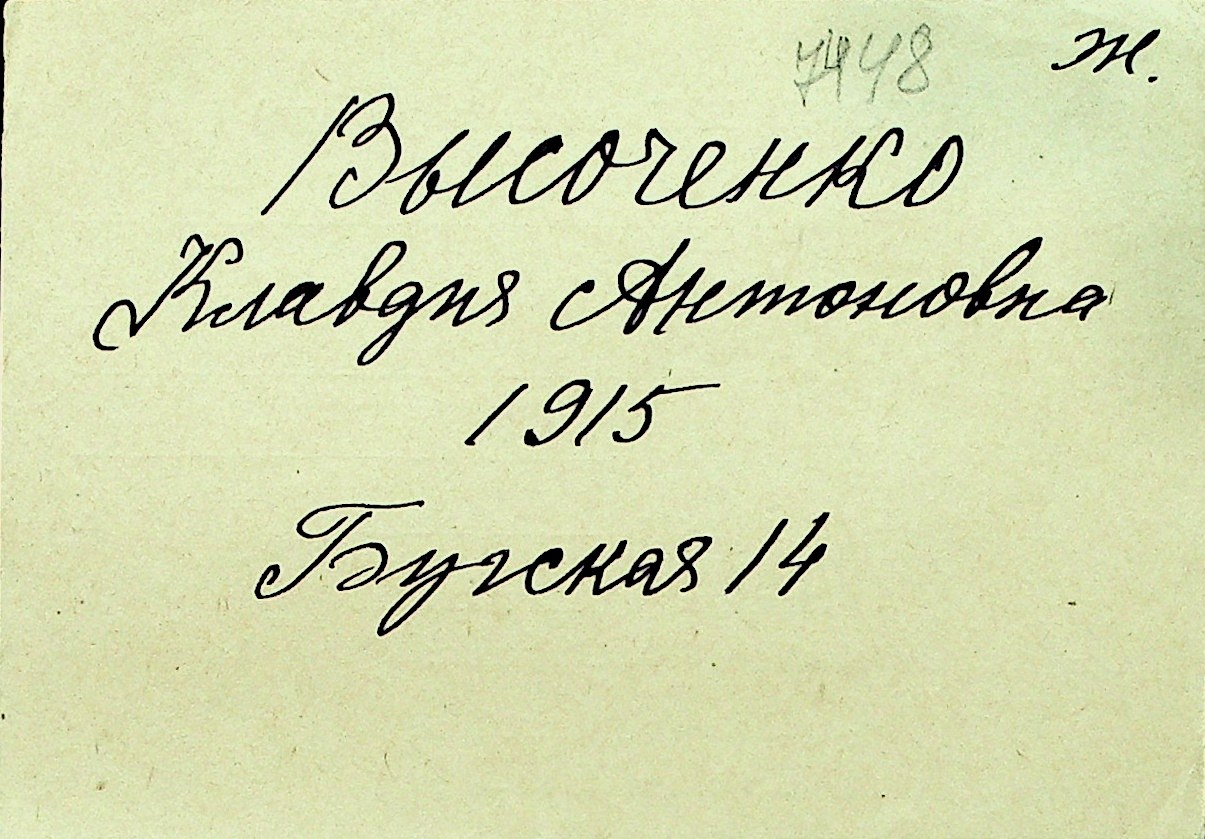 ж.
Высоченко
Клавдия Антоновна
1915
Бугская 14